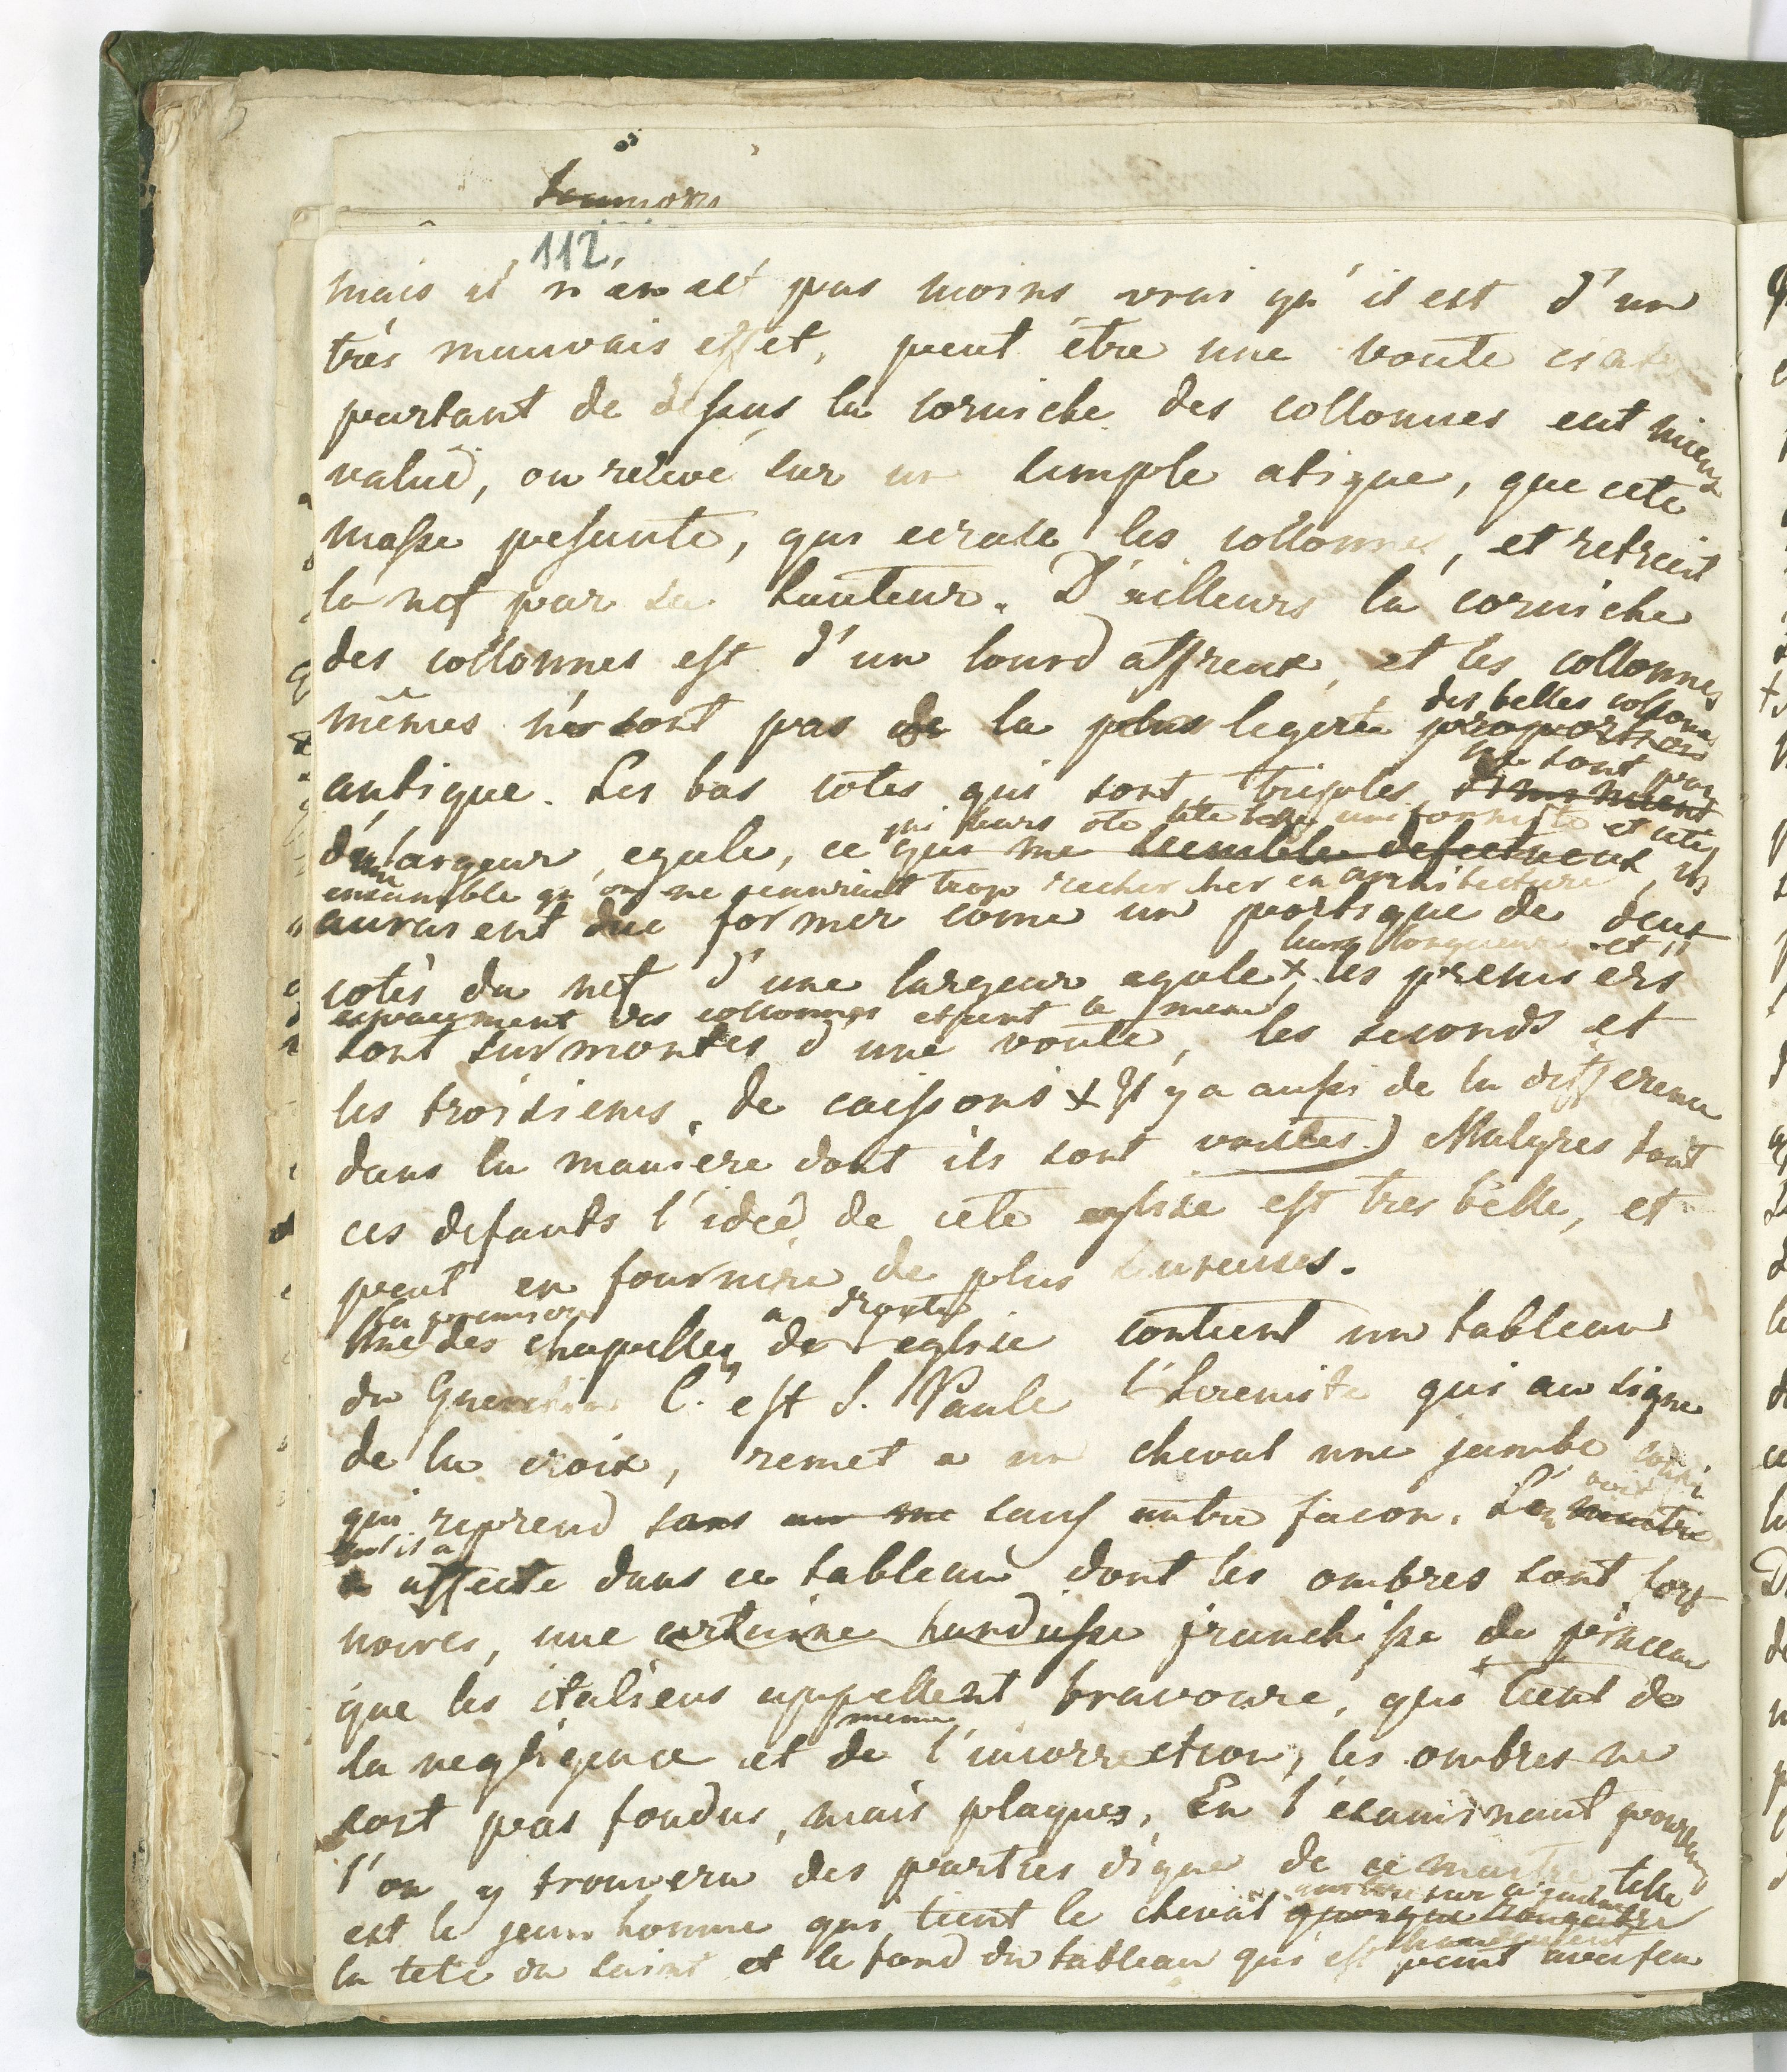 112.
mais il n'en est pas moins vrai qu'il est d'un
très mauvais effet, peut être une voute
partant de dessus la corniche des collonnes eut mieux
value, ou relevé sur un simple atique, que cete
masse pesante, qui ecrase les collonnes, et retrecit
la nef par sa hauteur. D'ailleurs la corniche
des collonnes est d'un lourd affreux, et les collonnes
des belles collonnes
mêmes ne sont pas de la plus legere proportion
ne sont pas
antique. Les bas cotes qui sont triples
qui leurs ote cete belle uniformité et cet
d'un largeur egale, ce qui me semble defectueux, ils
ensemble qu'on ne pouroit trop rechercher en architecture
auraient due former come un portique de deux
leurs longueurs et il
cotès du nef d'une largeur egale + les premiers
espacement des collonnes etant le meme
sont surmontes d'une voute, les seconds et
les troisiems, de caissons + Il y a aussi de la difference
dans la maniere dont ils sont voutes) Malgres tout
ces defauts l'ideé de cete eglise est tres belle, et
peut en fournire de plus hureuses.
La premiere a droite
Une des chapelles de l'eglise contient un tableau
du Guerchin C'est S. Paule l'heremite qui au signe
de la croix, remet a un cheval une jambe
qui reprend sans sans autre facon. Le maitre
qu'il a
a affecte dans ce tableau dont les ombres sont fort
noires, une certaine hardiesse franchisse de pinceau
que les italiens appellent bravoure, qui tient de
meme
la negligence et de l'incorrection, les ombres ne
sont pas fondus, mais plaques, En l'examinant pourtant
l'on y trouvera des parties digne de ce maitre telle
est le jeune homme qui tient le cheval
la tete du saint et le fond du tableau qui est peint avec feu